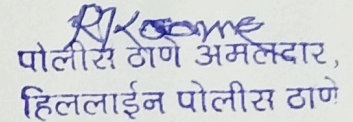 पोलीस ठाणे अमलदार,
हिललाईन पोलीस ठाणे